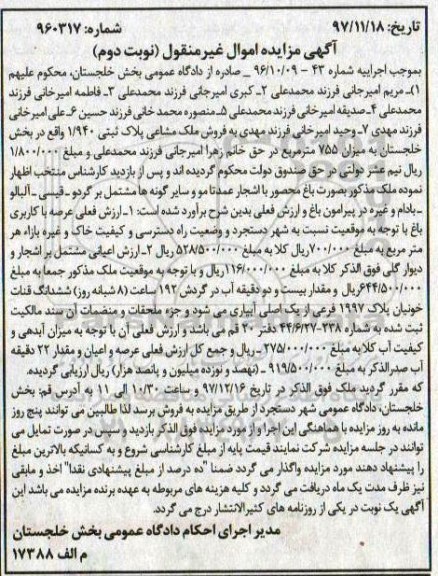 تاریخ: ۹۷/۱۱/۱۸ شماره: ۹۶۰۳۱۷
آگهی مزایده اموال غیرمنقول (نوبت دوم)
بموجب اجراییه شماره ۴۳ – ۹۶/۱۰/۰۹ _ صادره از دادگاه عمومی بخش خلجستان، محکوم علیهم
۱_ مریم امیرجانی فرزند محمدعلی ۲_ کبری امیرجانی فرزند محمدعلی ۳_ فاطمه امیرخانی فرزند
محمدعلی ۴_ صدیقه امیرخانی فرزند محمدعلی ۵_ منصوره محمدخانی فرزند حسین ۶_ علی امیرخانی
فرزند مهدی ۷_ وحید امیرخانی فرزند مهدی به فروش ملک مشاعی پلاک ثبتی ۱/۹۴۰ واقع در بخش
خلجستان به میزان ۷۵۵ مترمربع در حق خانم زهرا امیرجانی فرزند محمدعلی و مبلغ ۱/۸۰۰/۰۰۰
ریال نیم عشر دولتی در حق صندوق دولت محکوم گردیده اند و پس از بازدید کارشناس منتخب اظهار
نموده ملک مذکور بصورت باغ محصور با اشجار عمدتا مو و سایر گونه ها مشتمل بر گردو _ قیسی _ آلبالو
_ بادام و غیره در پیرامون باغ و ارزش فعلی بدین شرح برآورد شده است: ۱_ ارزش فعلی عرصه با کاربری
باغ با توجه به موقعیت نسبت به شهر دستجرد و وضعیت راه دسترسی و کیفیت خاک و غیره بازاء هر
متر مربع به مبلغ ۷۰۰/۰۰۰ ریال کلا به مبلغ ۵۲۸/۵۰۰/۰۰۰ ریال ۲_ ارزش اعیانی مشتمل بر اشجار و
دیوار گلی فوق الذکر کلا به مبلغ ۱۱۶/۰۰۰/۰۰۰ ریال و با توجه به موقعیت ملک مذکور جمعا به مبلغ
۶۴۴/۵۰۰/۰۰۰ ریال و مقدار بیست و دو دقیقه آب در گردش ۱۹۲ ساعت (۸ شبانه روز) ششدانگ قنات
خونیان پلاک ۱۹۹۷ فرعی از یک اصلی آبیاری می شود و جزء ملحقات و منضمات آن سند مالکیت
ثبت شده به شماره ۲۳۸-۴۴/۶/۲۷ دفتر ۲۰ قم می باشد و ارزش فعلی آن با توجه به میزان آبدهی و
کیفیت آب کلا به مبلغ ۲۷۵/۰۰۰/۰۰۰_ ریال و جمع کل ارزش فعلی عرصه و اعیان و مقدار ۲۲ دقیقه
آب صدرالذکر به مبلغ ۹۱۹/۵۰۰/۰۰۰ _ (نهصد و نوزده میلیون و پانصد هزار) ریال ارزیابی گردیده.
که مقرر گردید ملک فوق الذکر در تاریخ ۹۷/۱۲/۱۶ و ساعت ۱۰/۳۰ إلی ۱۱ به آدرس قم: بخش
خلجستان، دادگاه عمومی شهر دستجرد از طریق مزایده به فروش برسد لذا طالبین می توانند پنج روز
مانده به روز مزایده با هماهنگی این اجرا و از مورد مزایده فوق الذکر بازدید و سپس در صورت تمایل می
توانند در جلسه مزایده شرکت نمایند قیمت پایه از مبلغ کارشناسی شروع و به کسانیکه بالاترین مبلغ
را پیشنهاد دهند مورد مزایده واگذار می گردد ضمنا "ده درصد از مبلغ پیشنهادی نقدا" اخذ و مابقی
نیز ظرف مدت یک ماه دریافت می گردد و کلیه هزینه های مربوطه به عهده برنده مزایده می باشد این
آگهی یک نوبت در یکی از روزنامه های کثیرالانتشار درج می گردد.
مدیر اجرای احکام دادگاه عمومی بخش خلجستان
م الف ۱۷۳۸۸